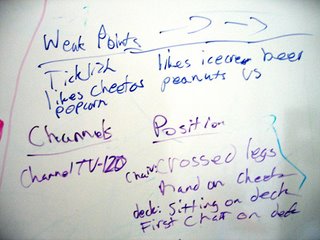 Weak Points
Ticklish
likes cheetos
popcorn
likes icecream beer
peanuts VS
Channels
Channel TV-120
Position
Chair: crossed legs
hand on cheek
deck: Sitting on deck
First Chair on deck